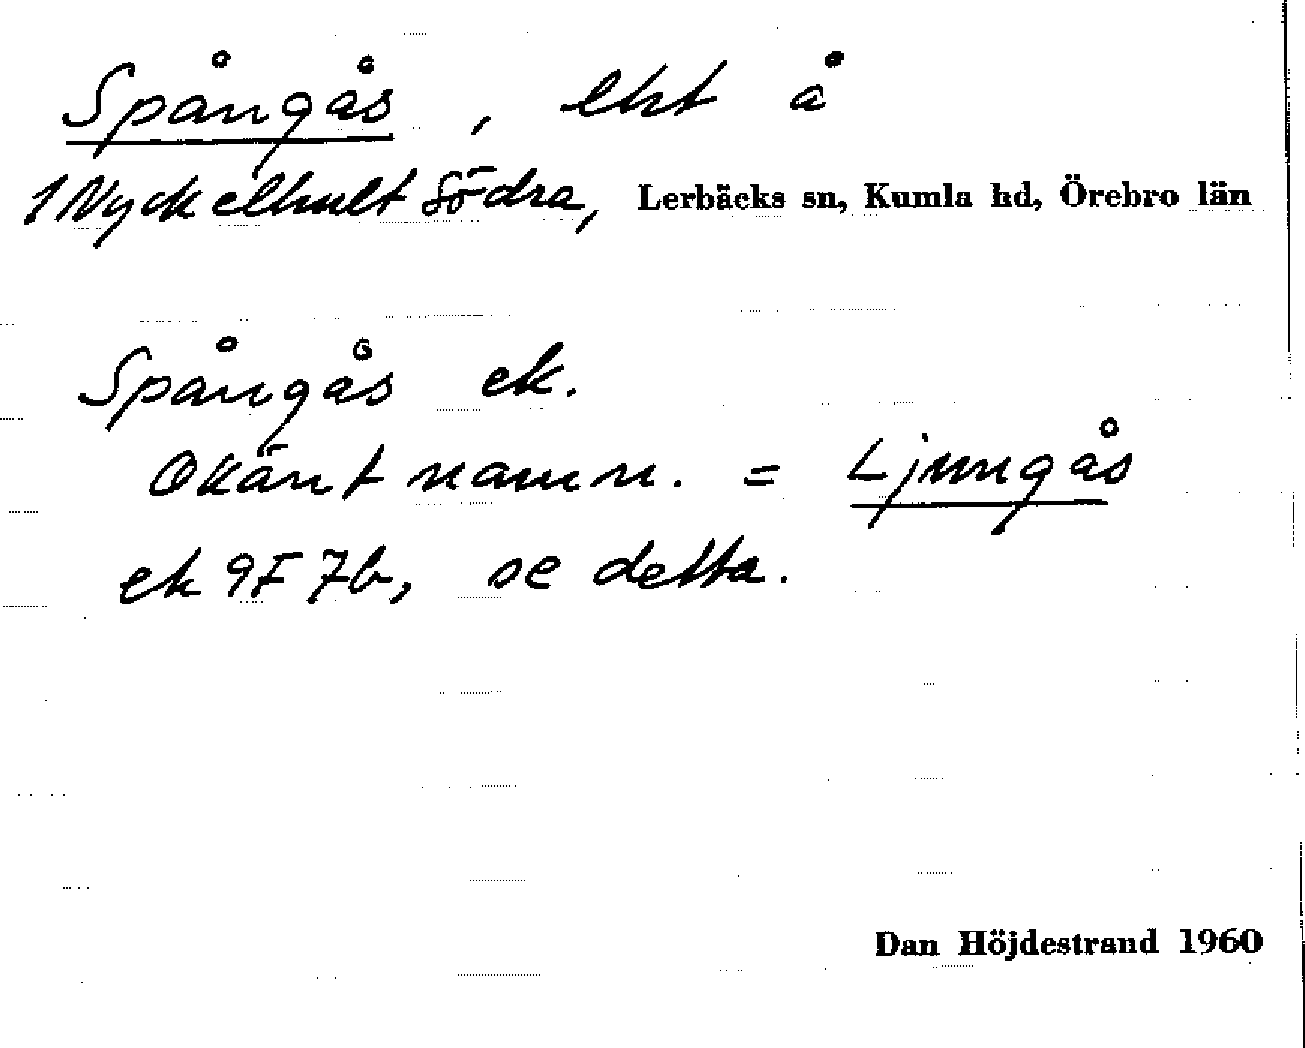 Spångås, lht å
1 Nyckelhult Södra, Lerbäcks sn, Kumla hd, Örebro län
Spångås ek.
Okänt namn. = Ljungås
ek 9F 7b, se detta.
Dan Höjdestrand 1960